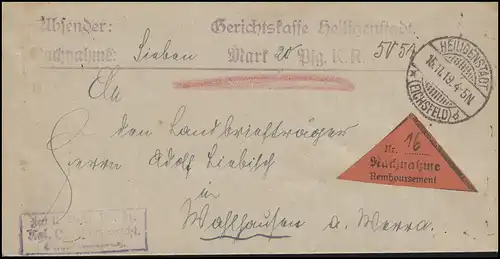 Absender: Gerichtskasse Heiligenstadt.
Nachnahme: Sieben Mark 20 Pfg. K.R.
HEILIGENSTADT
16.11.19. 4-5N
* (EICHSFELD) b
An
den Landbriefträger
Herrn Adolf Liebisch
in
Wahlhausen a. Werra.
Nr. 16
Nachnahme
Remboursement